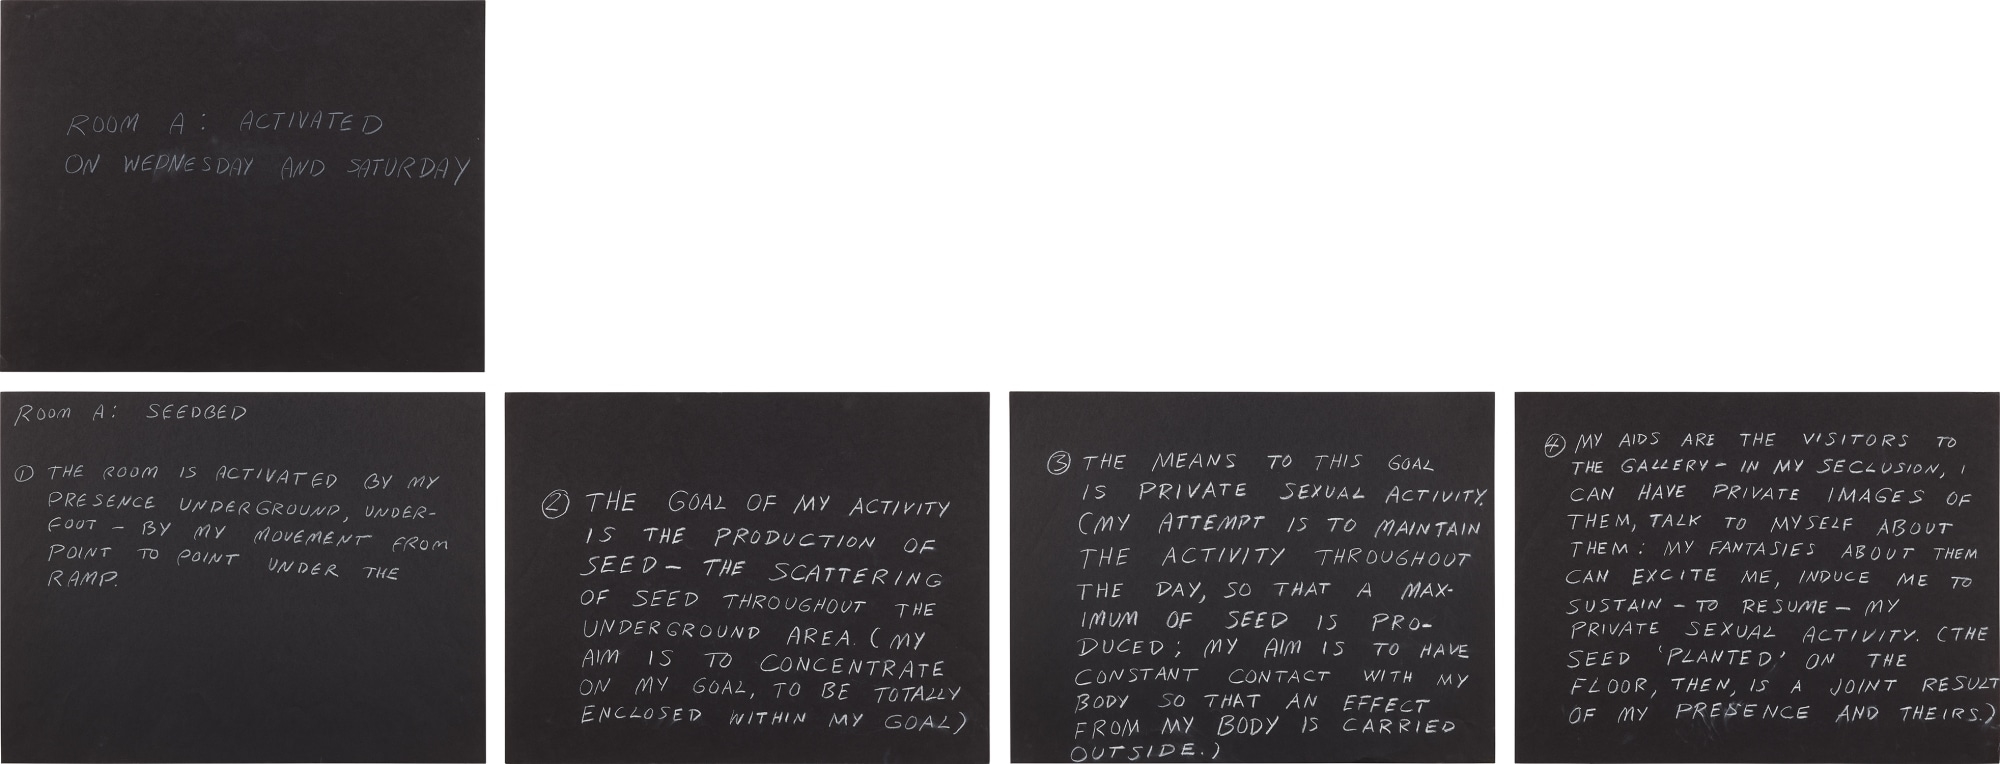 ROOM A: ACTIVATED
ON WEDNESDAY AND SATURDAY
ROOM A: SEEDBED
① THE ROOM IS ACTIVATED BY MY
PRESENCE UNDERGROUND, UNDER-
FOOT – BY MY MOVEMENT FROM
POINT TO POINT UNDER THE
RAMP.
② THE GOAL OF MY ACTIVITY
IS THE PRODUCTION OF
SEED – THE SCATTERING
OF SEED THROUGHOUT THE
UNDERGROUND AREA. (MY
AIM IS TO CONCENTRATE
ON MY GOAL, TO BE TOTALLY
ENCLOSED WITHIN MY GOAL)
③ THE MEANS TO THIS GOAL
IS PRIVATE SEXUAL ACTIVITY.
(MY ATTEMPT IS TO MAINTAIN
THE ACTIVITY THROUGHOUT
THE DAY, SO THAT A MAX-
IMUM OF SEED IS PRO-
DUCED; MY AIM IS TO HAVE
CONSTANT CONTACT WITH MY
BODY SO THAT AN EFFECT
FROM MY BODY IS CARRIED
OUTSIDE.)
④ MY AIDS ARE THE VISITORS TO
THE GALLERY – IN MY SECLUSION, I
CAN HAVE PRIVATE IMAGES OF
THEM, TALK TO MYSELF ABOUT
THEM: MY FANTASIES ABOUT THEM
CAN EXCITE ME, INDUCE ME TO
SUSTAIN – TO RESUME – MY
PRIVATE SEXUAL ACTIVITY. (THE
SEED 'PLANTED' ON THE
FLOOR, THEN, IS A JOINT RESULT
OF MY PRESENCE AND THEIRS.)